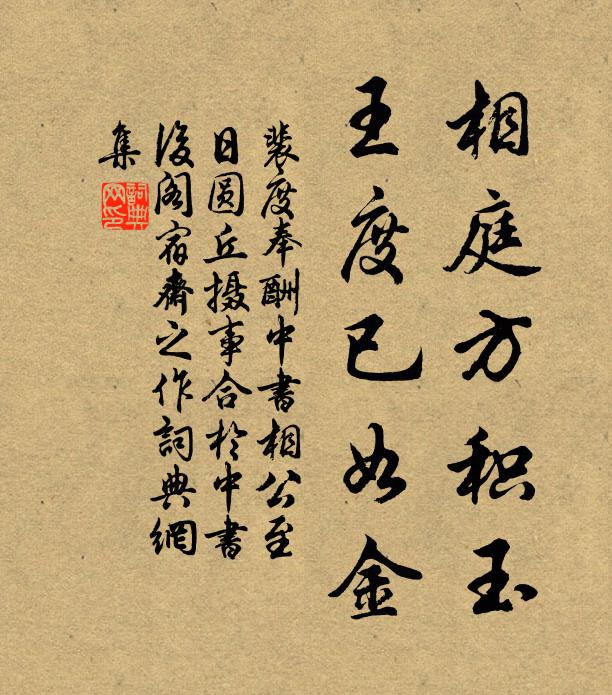 相庭方积玉
王度已如金
裴度奉酬中书相公至
日圆丘摄事合于中书
後阁宿斋之作词典網
集
詞典
网印